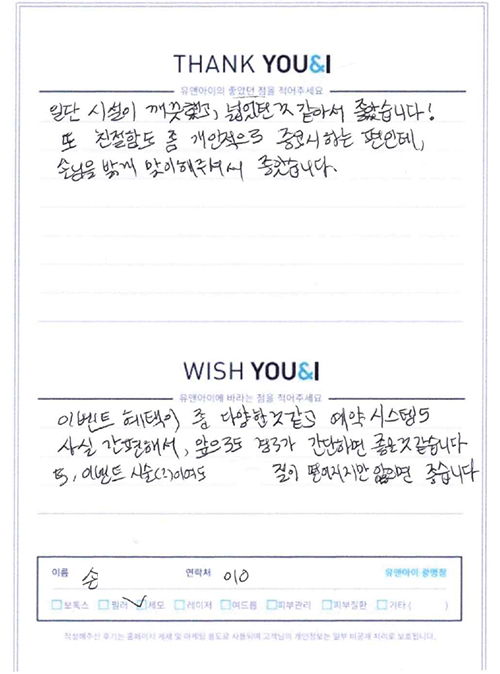 THANK YOU&I
유앤아이의 좋았던 점을 적어주세요
일단 시설이 깨끗했고, 넓었던 것 같아서 좋았습니다!
또 친절함도 좀 개인적으로 중요시하는 편인데,
손님을 밝게 맞이해주셔서 좋았습니다.
WISH YOU&I
유앤아이에 바라는 점을 적어주세요
이벤트 혜택이 좀 다양한것같고 예약 시스템도
사실 간편해서, 앞으로도 경로가 간단하면 좋은것같습니다
또, 이벤트 시술(?)이여도 질이 떨어지지만 않으면 좋습니다
이름 손 연락처 010 유앤아이 광명점
보톡스 필러 제모 레이저 여드름 피부관리 피부질환 기타 ( )
작성해주신 후기는 홈페이지 게재 및 마케팅 용도로 사용되며 고객님의 개인정보는 일부 비공개 처리로 보호됩니다.